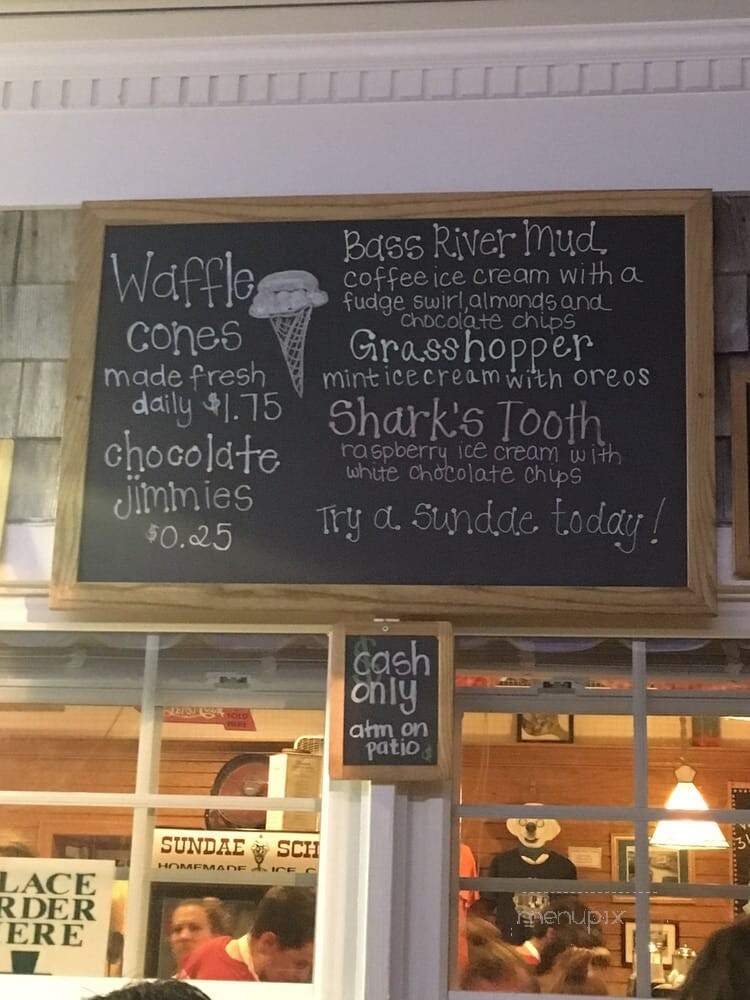 Waffle
cones
made fresh
daily $1.75
chocolate
jimmies
$0.25
Bass River Mud
coffee ice cream with a
fudge swirl, almonds and
chocolate chips
Grasshopper
mint ice cream with oreos
Shark's Tooth
raspberry ice cream with
white chocolate chips
Try a Sundae today!
cash
only
atm on
patio
SUNDAE SCH
HOMEMADE ICE C
LACE
RDER
ERE
menupix